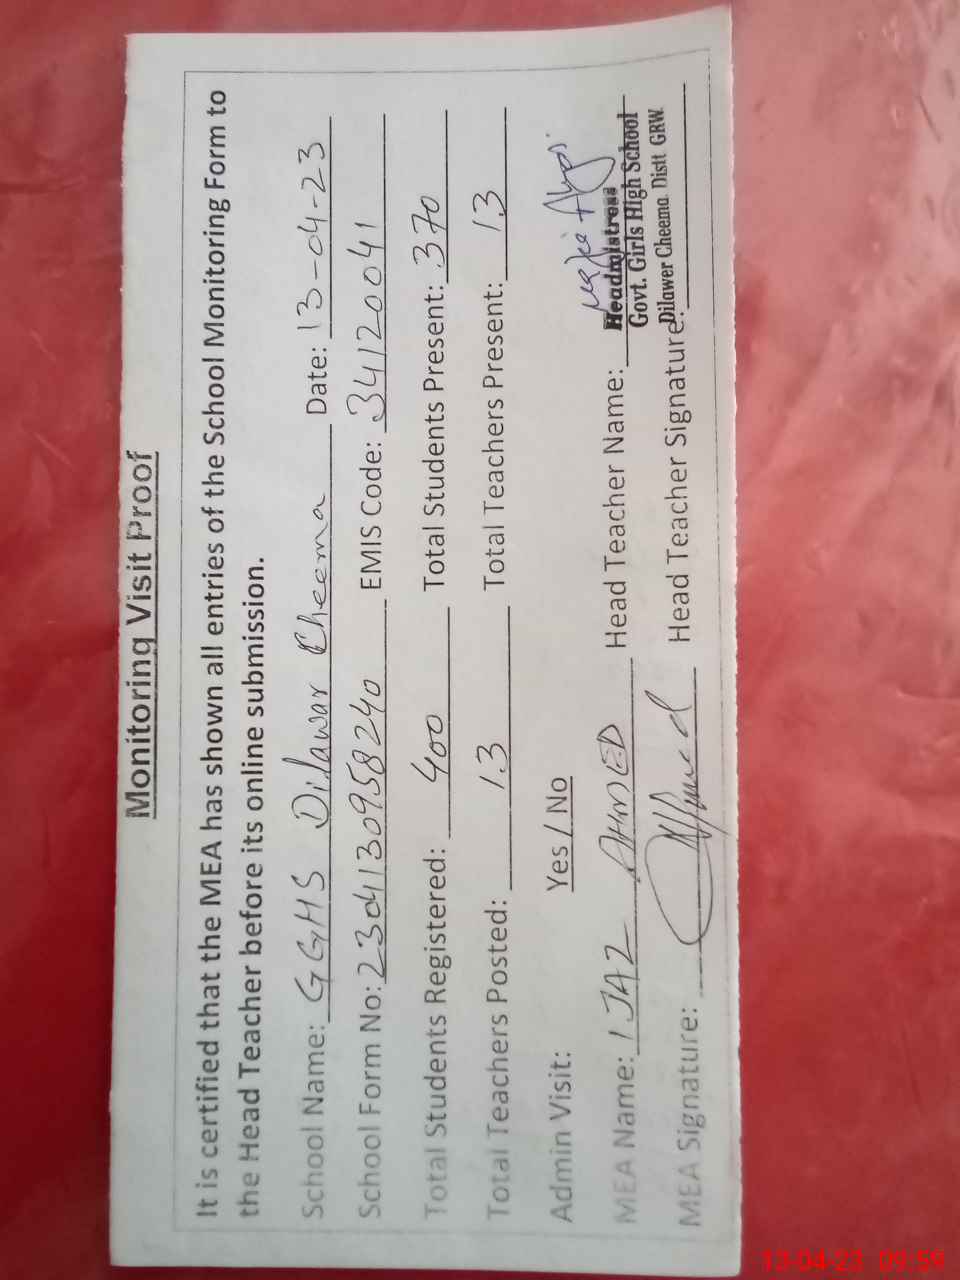 Monitoring Visit Proof
It is certified that the MEA has shown all entries of the School Monitoring Form to
the Head Teacher before its online submission.
School Name: GGHS Dilawar Cheema Date: 13-04-23
School Form No: 2304130958240 EMIS Code: 34120041
Total Students Registered: 400 Total Students Present: 370
Total Teachers Posted: 13 Total Teachers Present: 13
Admin Visit: Yes / No
MEA Name: IJAZ AHMED Head Teacher Name:
Headmistress
Govt. Girls High School
Dilawer Cheema Distt GRW.
MEA Signature: Head Teacher Signature:
13-04-23 09:59